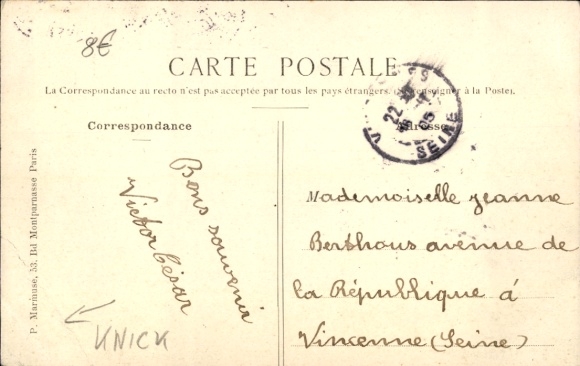 8€
CARTE POSTALE
La Correspondance au recto n'est pas acceptée par tous les pays étrangers. (Se renseigner à la Poste).
Correspondance
Adresse
22
05
SEINE
Bons souvenir
Victor César
Mademoiselle Jeanne
Berthous avenue de
la République á
Vincenne (Seine)
P. Marmuse, 53, Bd Montparnasse Paris
KNICK